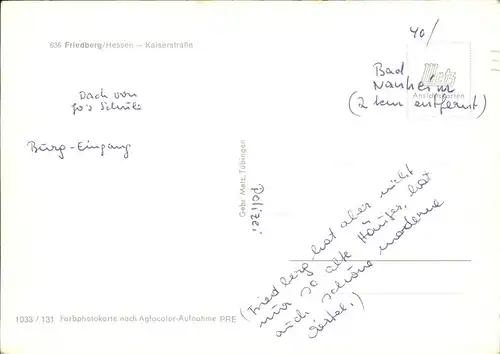 636 Friedberg/Hessen — Kaiserstraße
40/
Metz
Ansichtskarten
Bad
Nauheim
(2 km entfernt)
Dach von
Jo's Schule
Burg-Eingang
Gebr. Metz, Tübingen
Polizei
(Friedberg hat aber nicht
nur so alte Häuser, hat
auch schöne moderne
Viertel.)
1033 / 131 Farbphotokarte nach Agfacolor-Aufnahme PRE